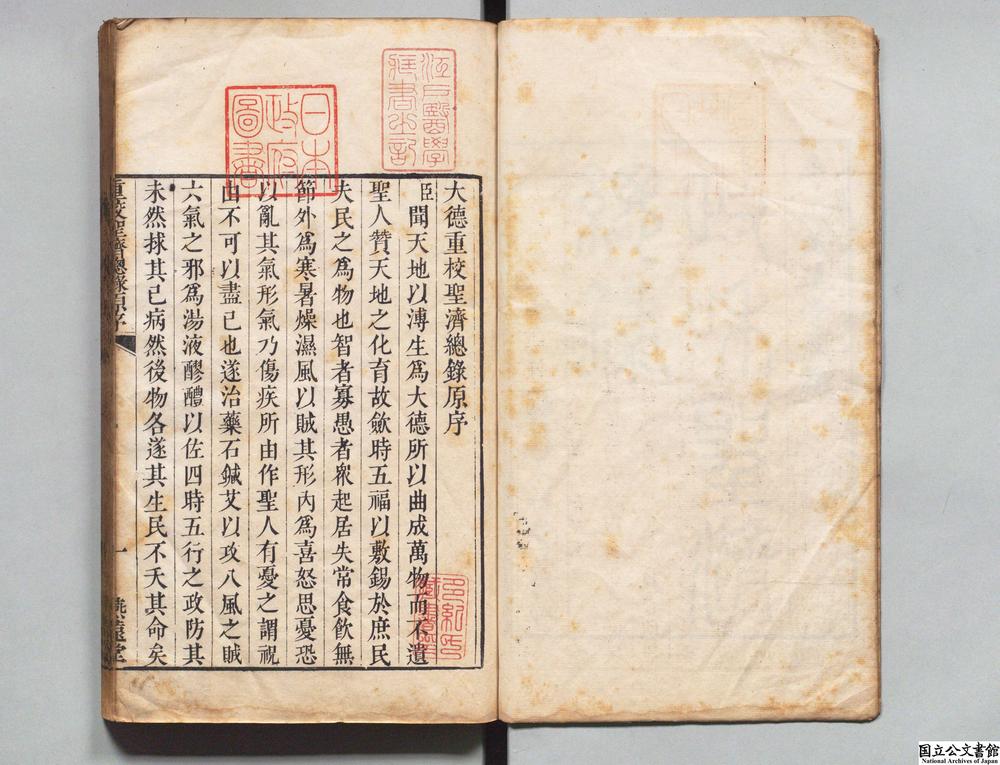 大德重校聖濟總錄原序
臣聞天地以溥生爲大德所以曲成萬物而不遺
聖人贊天地之化育故歛時五福以敷錫於庶民
夫民之爲物也智者寡愚者衆起居失常食飮無
節外爲寒暑燥濕風以賊其形內爲喜怒思憂恐
以亂其氣形氣乃傷疾所由作聖人有憂之謂祝
由不可以盡已也遂治藥石鍼艾以攻八風之賊
六氣之邪爲湯液醪醴以佐四時五行之政防其
未然捄其已病然後物各遂其生民不夭其命矣
重校聖濟總錄原序
一
江戶醫學
藏書之記
日本
政府
圖書
国立公文書館
National Archives of Japan